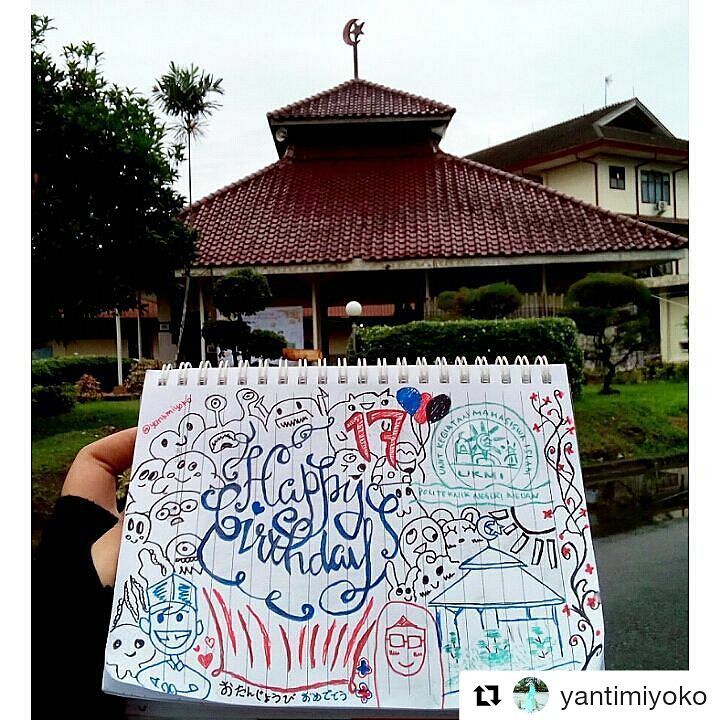 @yantimiyoko
17
Happy
Birthday
UNIT KEGIATAN MAHASISWA ISLAM
UKMI
POLITEKNIK NEGERI MEDAN
おたんじょうび おめでとう
yantimiyoko